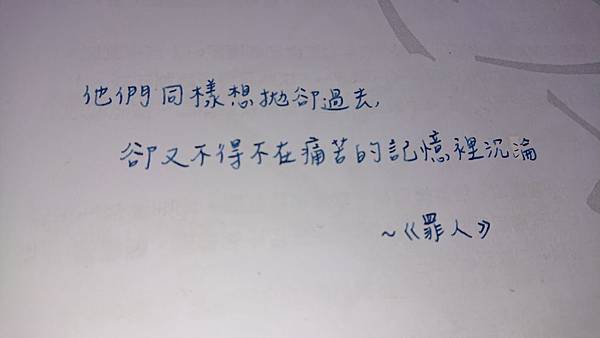 他們同樣想拋卻過去,
卻又不得不在痛苦的記憶裡沉淪
~《罪人》